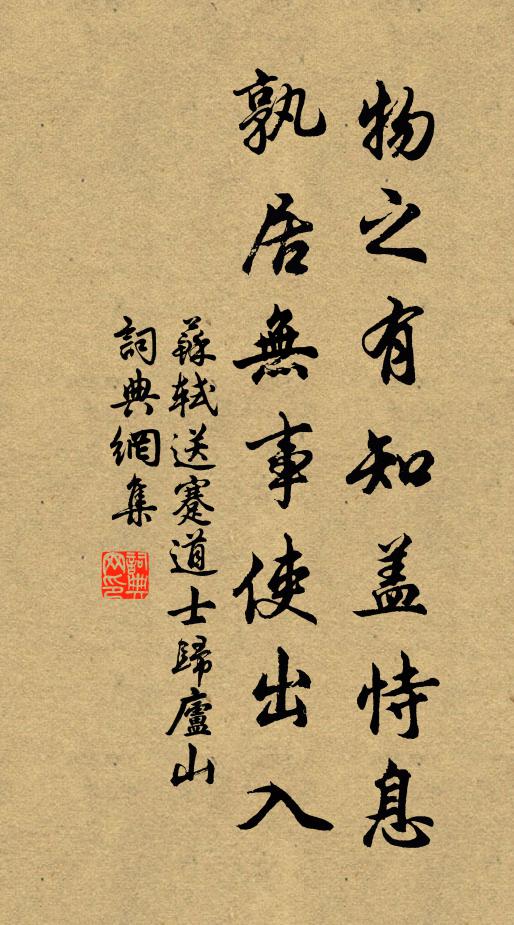 物之有知盖恃息
孰居無事使出入
蘇軾送蹇道士歸廬山
詞典網集
詞典網印